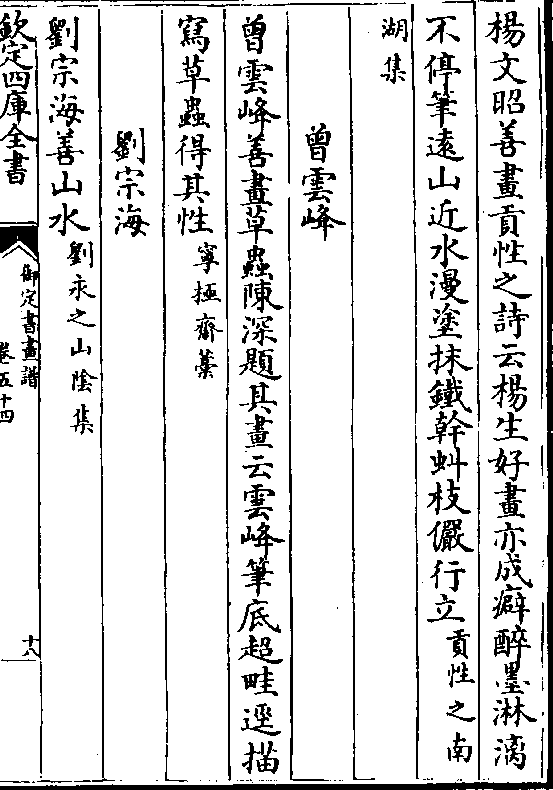 楊文昭善畫貢性之詩云楊生好畫亦成癖醉墨淋漓
不停筆遠山近水漫塗抹鐵幹虯枝儼行立貢性之南
湖集
曾雲峰
曾雲峰善畫草蟲陳深題其畫云雲峰筆底超畦逕描
寫草蟲得其性寧極齋藁
劉宗海
劉宗海善山水劉永之山陰集
欽定四庫全書
御定書畫譜
卷五十四
十八